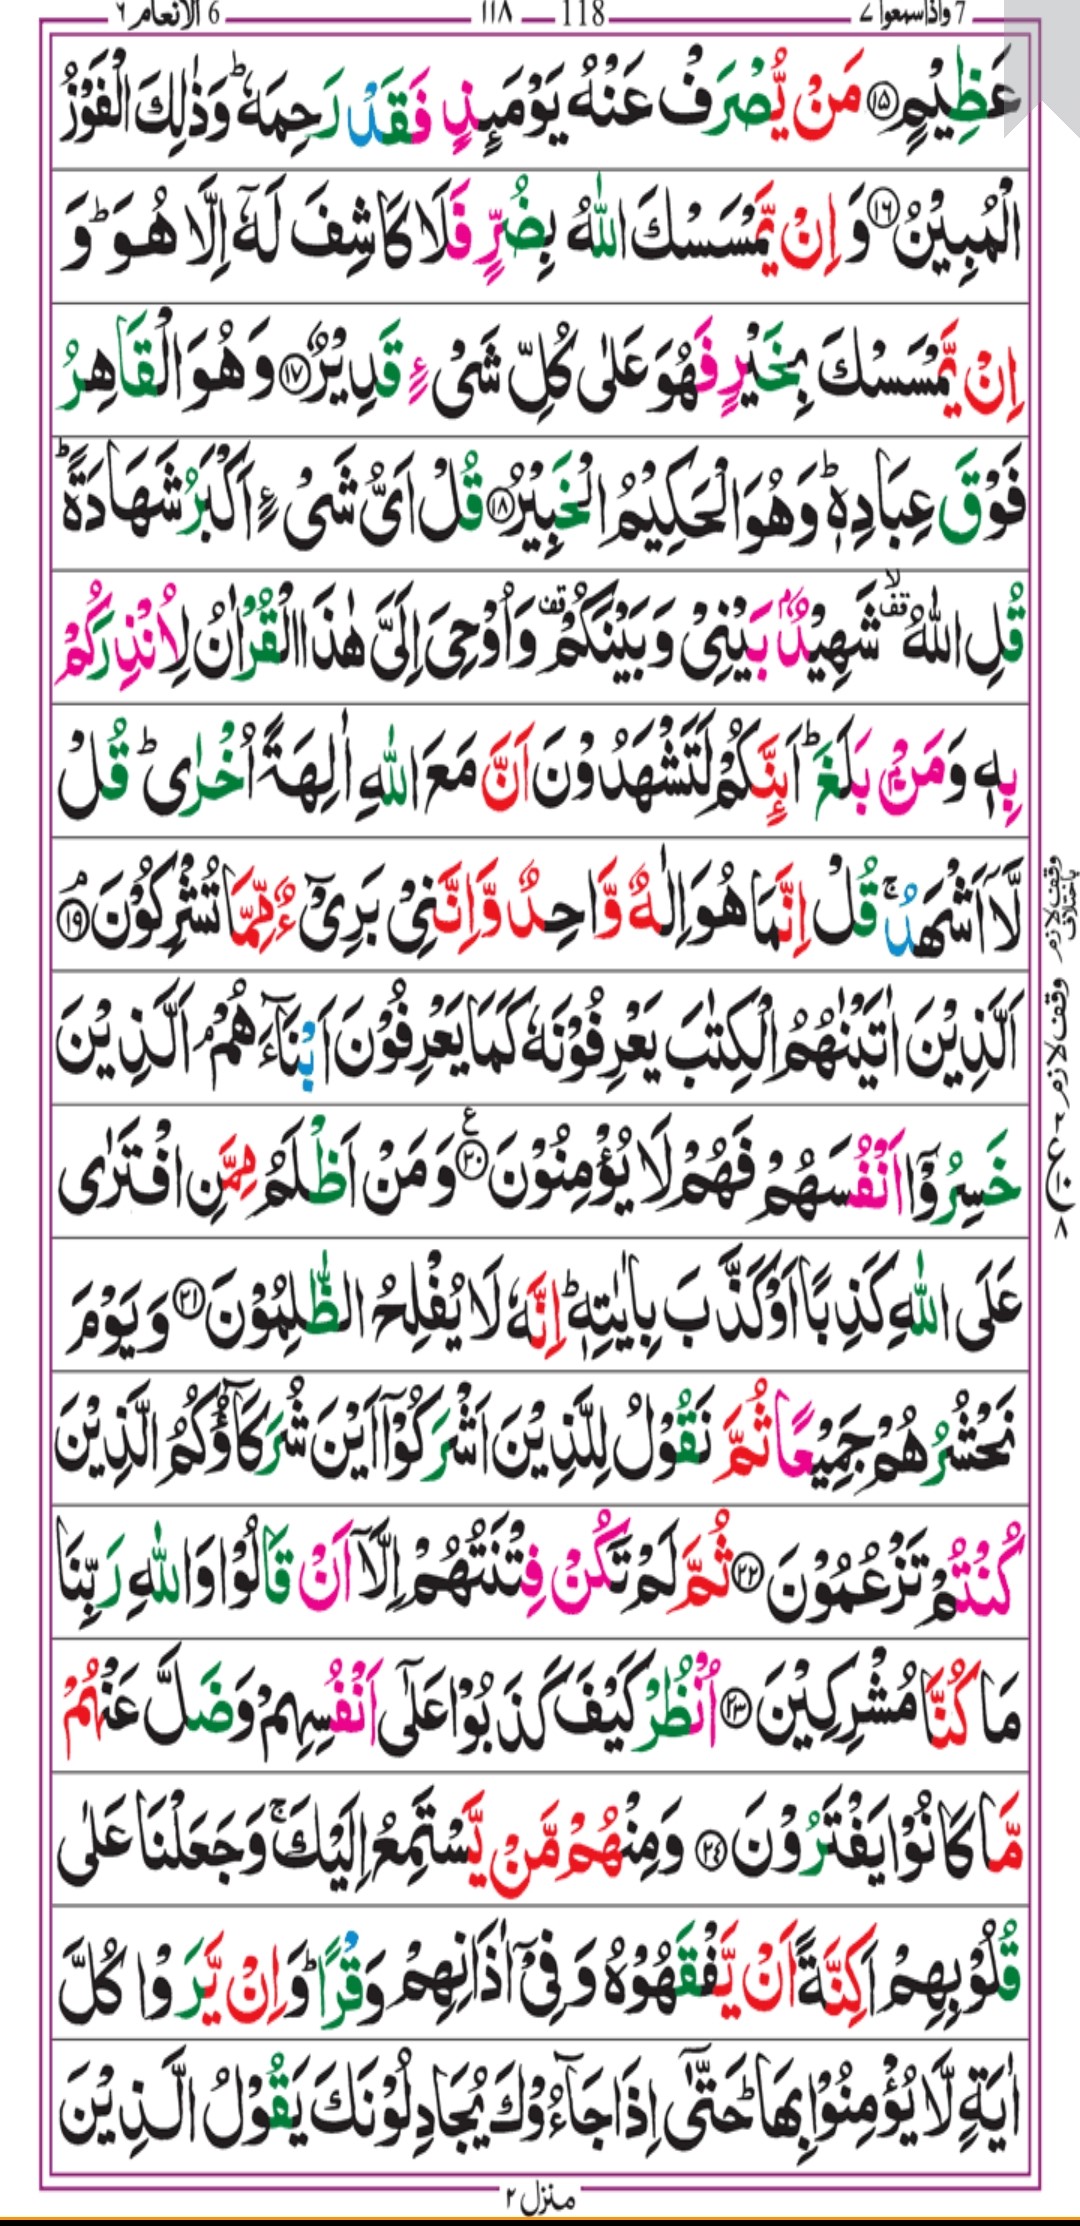 7 واذاسمعوا ٧ 118 — ١١٨ 6 الانعام ٦
عَظِيْمٍ ⑮ مَنْ يُّصْرَفْ عَنْهُ يَوْمَىِٕذٍ فَقَدْ رَحِمَهٗ ؕ وَذٰلِكَ الْفَوْزُ
الْمُبِيْنُ ⑯ وَ اِنْ يَّمْسَسْكَ اللّٰهُ بِضُرٍّ فَلَا كَاشِفَ لَهٗۤ اِلَّا هُوَ ؕ وَ
اِنْ يَّمْسَسْكَ بِخَيْرٍ فَهُوَ عَلٰى كُلِّ شَیْءٍ قَدِيْرٌ ⑰ وَ هُوَ الْقَاهِرُ
فَوْقَ عِبَادِهٖ ؕ وَهُوَ الْحَكِيْمُ الْخَبِيْرُ ⑱ قُلْ اَیُّ شَیْءٍ اَكْبَرُ شَهَادَةً ؕ
قُلِ اللّٰهُ ۙ قف شَهِيْدٌۢ بَيْنِیْ وَ بَيْنَكُمْ قف وَ اُوْحِیَ اِلَیَّ هٰذَا الْقُرْاٰنُ لِاُنْذِرَكُمْ
بِهٖ وَ مَنْۢ بَلَغَ ؕ اَىِٕنَّكُمْ لَتَشْهَدُوْنَ اَنَّ مَعَ اللّٰهِ اٰلِهَةً اُخْرٰى ؕ قُلْ
لَّاۤ اَشْهَدُ ۚ قُلْ اِنَّمَا هُوَ اِلٰهٌ وَّاحِدٌ وَّ اِنَّنِیْ بَرِیْٓءٌ مِّمَّا تُشْرِكُوْنَ ۘ ⑲
وقف لازم باختلاف
اَلَّذِيْنَ اٰتَيْنٰهُمُ الْكِتٰبَ يَعْرِفُوْنَهٗ كَمَا يَعْرِفُوْنَ اَبْنَآءَهُمْ ۘ اَلَّذِيْنَ
وقف لازم
خَسِرُوْۤا اَنْفُسَهُمْ فَهُمْ لَا يُؤْمِنُوْنَ ع ⑳ وَ مَنْ اَظْلَمُ مِمَّنِ افْتَرٰى
عَلَى اللّٰهِ كَذِبًا اَوْ كَذَّبَ بِاٰيٰتِهٖ ؕ اِنَّهٗ لَا يُفْلِحُ الظّٰلِمُوْنَ ㉑ وَ يَوْمَ
نَحْشُرُهُمْ جَمِيْعًا ثُمَّ نَقُوْلُ لِلَّذِيْنَ اَشْرَكُوْۤا اَيْنَ شُرَكَآؤُكُمُ الَّذِيْنَ
كُنْتُمْ تَزْعُمُوْنَ ㉒ ثُمَّ لَمْ تَكُنْ فِتْنَتُهُمْ اِلَّاۤ اَنْ قَالُوْا وَ اللّٰهِ رَبِّنَا
مَا كُنَّا مُشْرِكِيْنَ ㉓ اُنْظُرْ كَيْفَ كَذَبُوْا عَلٰۤى اَنْفُسِهِمْ وَ ضَلَّ عَنْهُمْ
مَّا كَانُوْا يَفْتَرُوْنَ ㉔ وَمِنْهُمْ مَّنْ يَّسْتَمِعُ اِلَيْكَ ۚ وَ جَعَلْنَا عَلٰى
قُلُوْبِهِمْ اَكِنَّةً اَنْ يَّفْقَهُوْهُ وَ فِیْۤ اٰذَانِهِمْ وَقْرًا ؕ وَ اِنْ يَّرَوْا كُلَّ
اٰيَةٍ لَّا يُؤْمِنُوْا بِهَا ؕ حَتّٰۤى اِذَا جَآءُوْكَ يُجَادِلُوْنَكَ يَقُوْلُ الَّذِيْنَ
منزل ٢